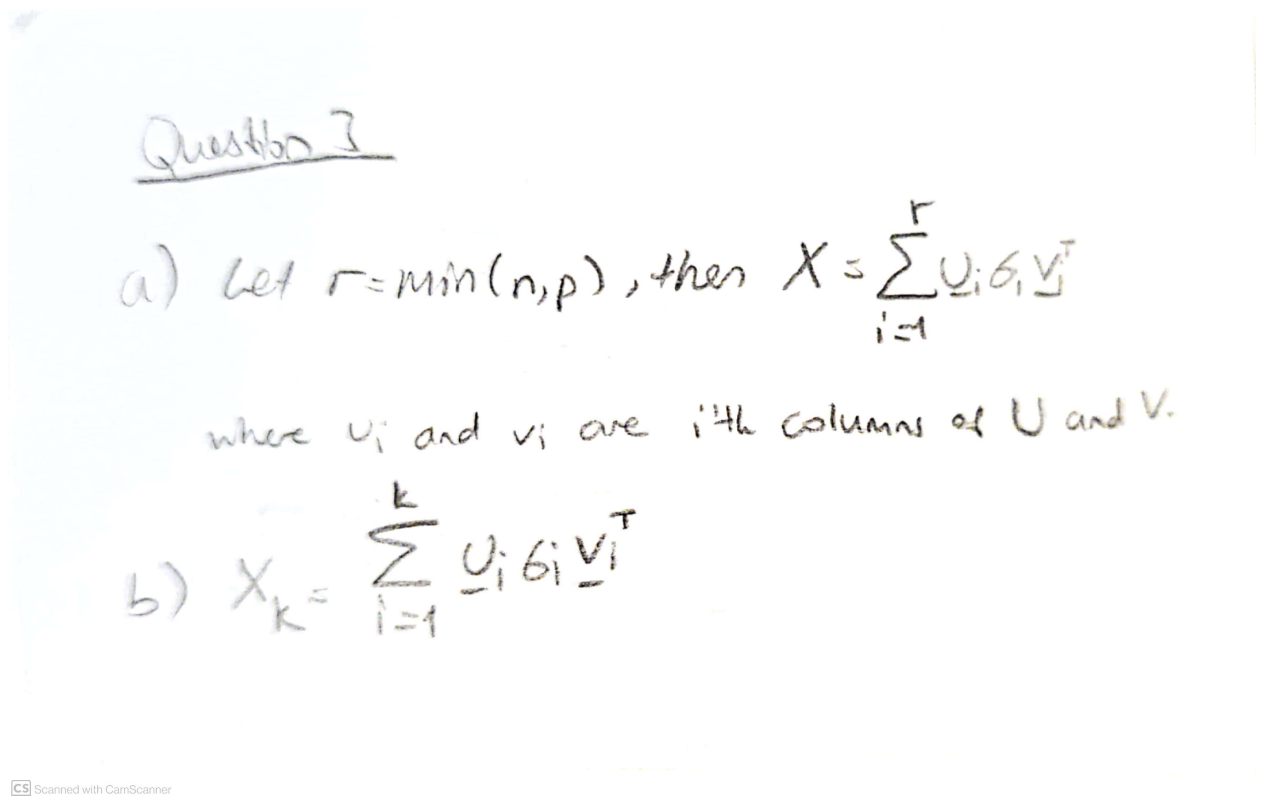 Question 3
a) Let r=min(n,p), then X = ∑_{i=1}^{r} u_i σ_i v_i^T
where u_i and v_i are i'th columns of U and V.
b) X_k = ∑_{i=1}^{k} u_i σ_i v_i^T
CS Scanned with CamScanner